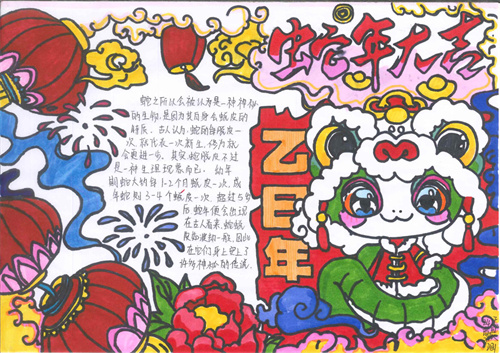 蛇年大吉
乙巳年
蛇之所以会被认为是一种神秘
的生物,是因为其自身有蜕皮的
特长。古人认为,蛇的每脱皮一
次,就代表一次新生,修为就
会更进一步。其实,蛇脱皮不过
是一种生理现象而已。幼年
期蛇大约每1-2个月蜕皮一次,成
年蛇则3-4个蜕皮一次。超过5岁
后
在古人看来,蛇蜕
在它们身上
许多神秘的传说。